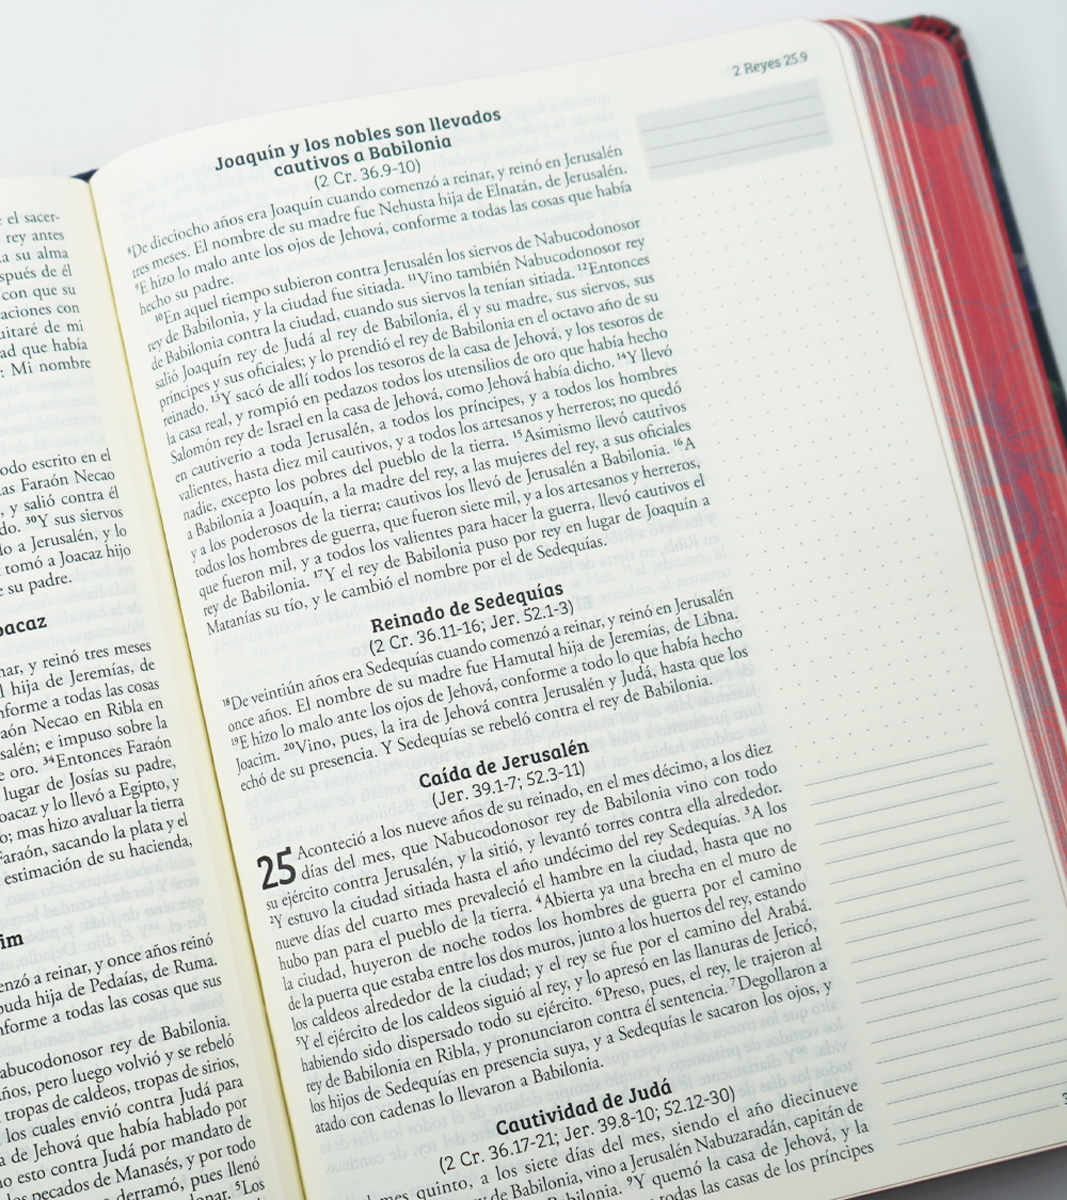 el sacer-
rey antes
a su alma
spués de él
con que su
aciones con
uitaré de mi
ad que había
: Mi nombre
odo escrito en el
as Faraón Necao
, y salió contra él
do. ³⁰Y sus siervos
lo a Jerusalén, y lo
tomó a Joacaz hijo
e su padre.
oacaz
nar, y reinó tres meses
l hija de Jeremías, de
nforme a todas las cosas
aón Necao en Ribla en
salén; e impuso sobre la
e oro. ³⁴Entonces Faraón
lugar de Josías su padre,
oacaz y lo llevó a Egipto, y
ó; mas hizo avaluar la tierra
Faraón, sacando la plata y el
estimación de su hacienda,
im
enzó a reinar, y once años reinó
buda hija de Pedaías, de Ruma.
nforme a todas las cosas que sus
abucodonosor rey de Babilonia.
años, pero luego volvió y se rebeló
tropas de caldeos, tropas de sirios,
los cuales envió contra Judá para
a de Jehová que había hablado por
o esto contra Judá por mandato de
os pecados de Manasés, y por todo
derramó, pues llenó
onar. ⁵Los
2 Reyes 25.9
Joaquín y los nobles son llevados
cautivos a Babilonia
(2 Cr. 36.9-10)
⁸De dieciocho años era Joaquín cuando comenzó a reinar, y reinó en Jerusalén
tres meses. El nombre de su madre fue Nehusta hija de Elnatán, de Jerusalén.
⁹E hizo lo malo ante los ojos de Jehová, conforme a todas las cosas que había
hecho su padre.
¹⁰En aquel tiempo subieron contra Jerusalén los siervos de Nabucodonosor
rey de Babilonia, y la ciudad fue sitiada. ¹¹Vino también Nabucodonosor rey
de Babilonia contra la ciudad, cuando sus siervos la tenían sitiada. ¹²Entonces
salió Joaquín rey de Judá al rey de Babilonia, él y su madre, sus siervos, sus
príncipes y sus oficiales; y lo prendió el rey de Babilonia en el octavo año de su
reinado. ¹³Y sacó de allí todos los tesoros de la casa de Jehová, y los tesoros de
la casa real, y rompió en pedazos todos los utensilios de oro que había hecho
Salomón rey de Israel en la casa de Jehová, como Jehová había dicho. ¹⁴Y llevó
en cautiverio a toda Jerusalén, a todos los príncipes, y a todos los hombres
valientes, hasta diez mil cautivos, y a todos los artesanos y herreros; no quedó
nadie, excepto los pobres del pueblo de la tierra. ¹⁵Asimismo llevó cautivos
a Babilonia a Joaquín, a la madre del rey, a las mujeres del rey, a sus oficiales
y a los poderosos de la tierra; cautivos los llevó de Jerusalén a Babilonia. ¹⁶A
todos los hombres de guerra, que fueron siete mil, y a los artesanos y herreros,
que fueron mil, y a todos los valientes para hacer la guerra, llevó cautivos el
rey de Babilonia. ¹⁷Y el rey de Babilonia puso por rey en lugar de Joaquín a
Matanías su tío, y le cambió el nombre por el de Sedequías.
Reinado de Sedequías
(2 Cr. 36.11-16; Jer. 52.1-3)
¹⁸De veintiún años era Sedequías cuando comenzó a reinar, y reinó en Jerusalén
once años. El nombre de su madre fue Hamutal hija de Jeremías, de Libna.
¹⁹E hizo lo malo ante los ojos de Jehová, conforme a todo lo que había hecho
Joacim. ²⁰Vino, pues, la ira de Jehová contra Jerusalén y Judá, hasta que los
echó de su presencia. Y Sedequías se rebeló contra el rey de Babilonia.
Caída de Jerusalén
(Jer. 39.1-7; 52.3-11)
25 Aconteció a los nueve años de su reinado, en el mes décimo, a los diez
días del mes, que Nabucodonosor rey de Babilonia vino con todo
su ejército contra Jerusalén, y la sitió, y levantó torres contra ella alrededor.
²Y estuvo la ciudad sitiada hasta el año undécimo del rey Sedequías. ³A los
nueve días del cuarto mes prevaleció el hambre en la ciudad, hasta que no
hubo pan para el pueblo de la tierra. ⁴Abierta ya una brecha en el muro de
la ciudad, huyeron de noche todos los hombres de guerra por el camino
de la puerta que estaba entre los dos muros, junto a los huertos del rey, estando
los caldeos alrededor de la ciudad; y el rey se fue por el camino del Arabá.
⁵Y el ejército de los caldeos siguió al rey, y lo apresó en las llanuras de Jericó,
habiendo sido dispersado todo su ejército. ⁶Preso, pues, el rey, le trajeron al
rey de Babilonia en Ribla, y pronunciaron contra él sentencia. ⁷Degollaron a
los hijos de Sedequías en presencia suya, y a Sedequías le sacaron los ojos, y
atado con cadenas lo llevaron a Babilonia.
Cautividad de Judá
(2 Cr. 36.17-21; Jer. 39.8-10; 52.12-30)
mes quinto, a los siete días del mes, siendo el año diecinueve
y de Babilonia, vino a Jerusalén Nabuzaradán, capitán de
bilonia. ⁹Y quemó la casa de Jehová, y la
todas las casas de los príncipes